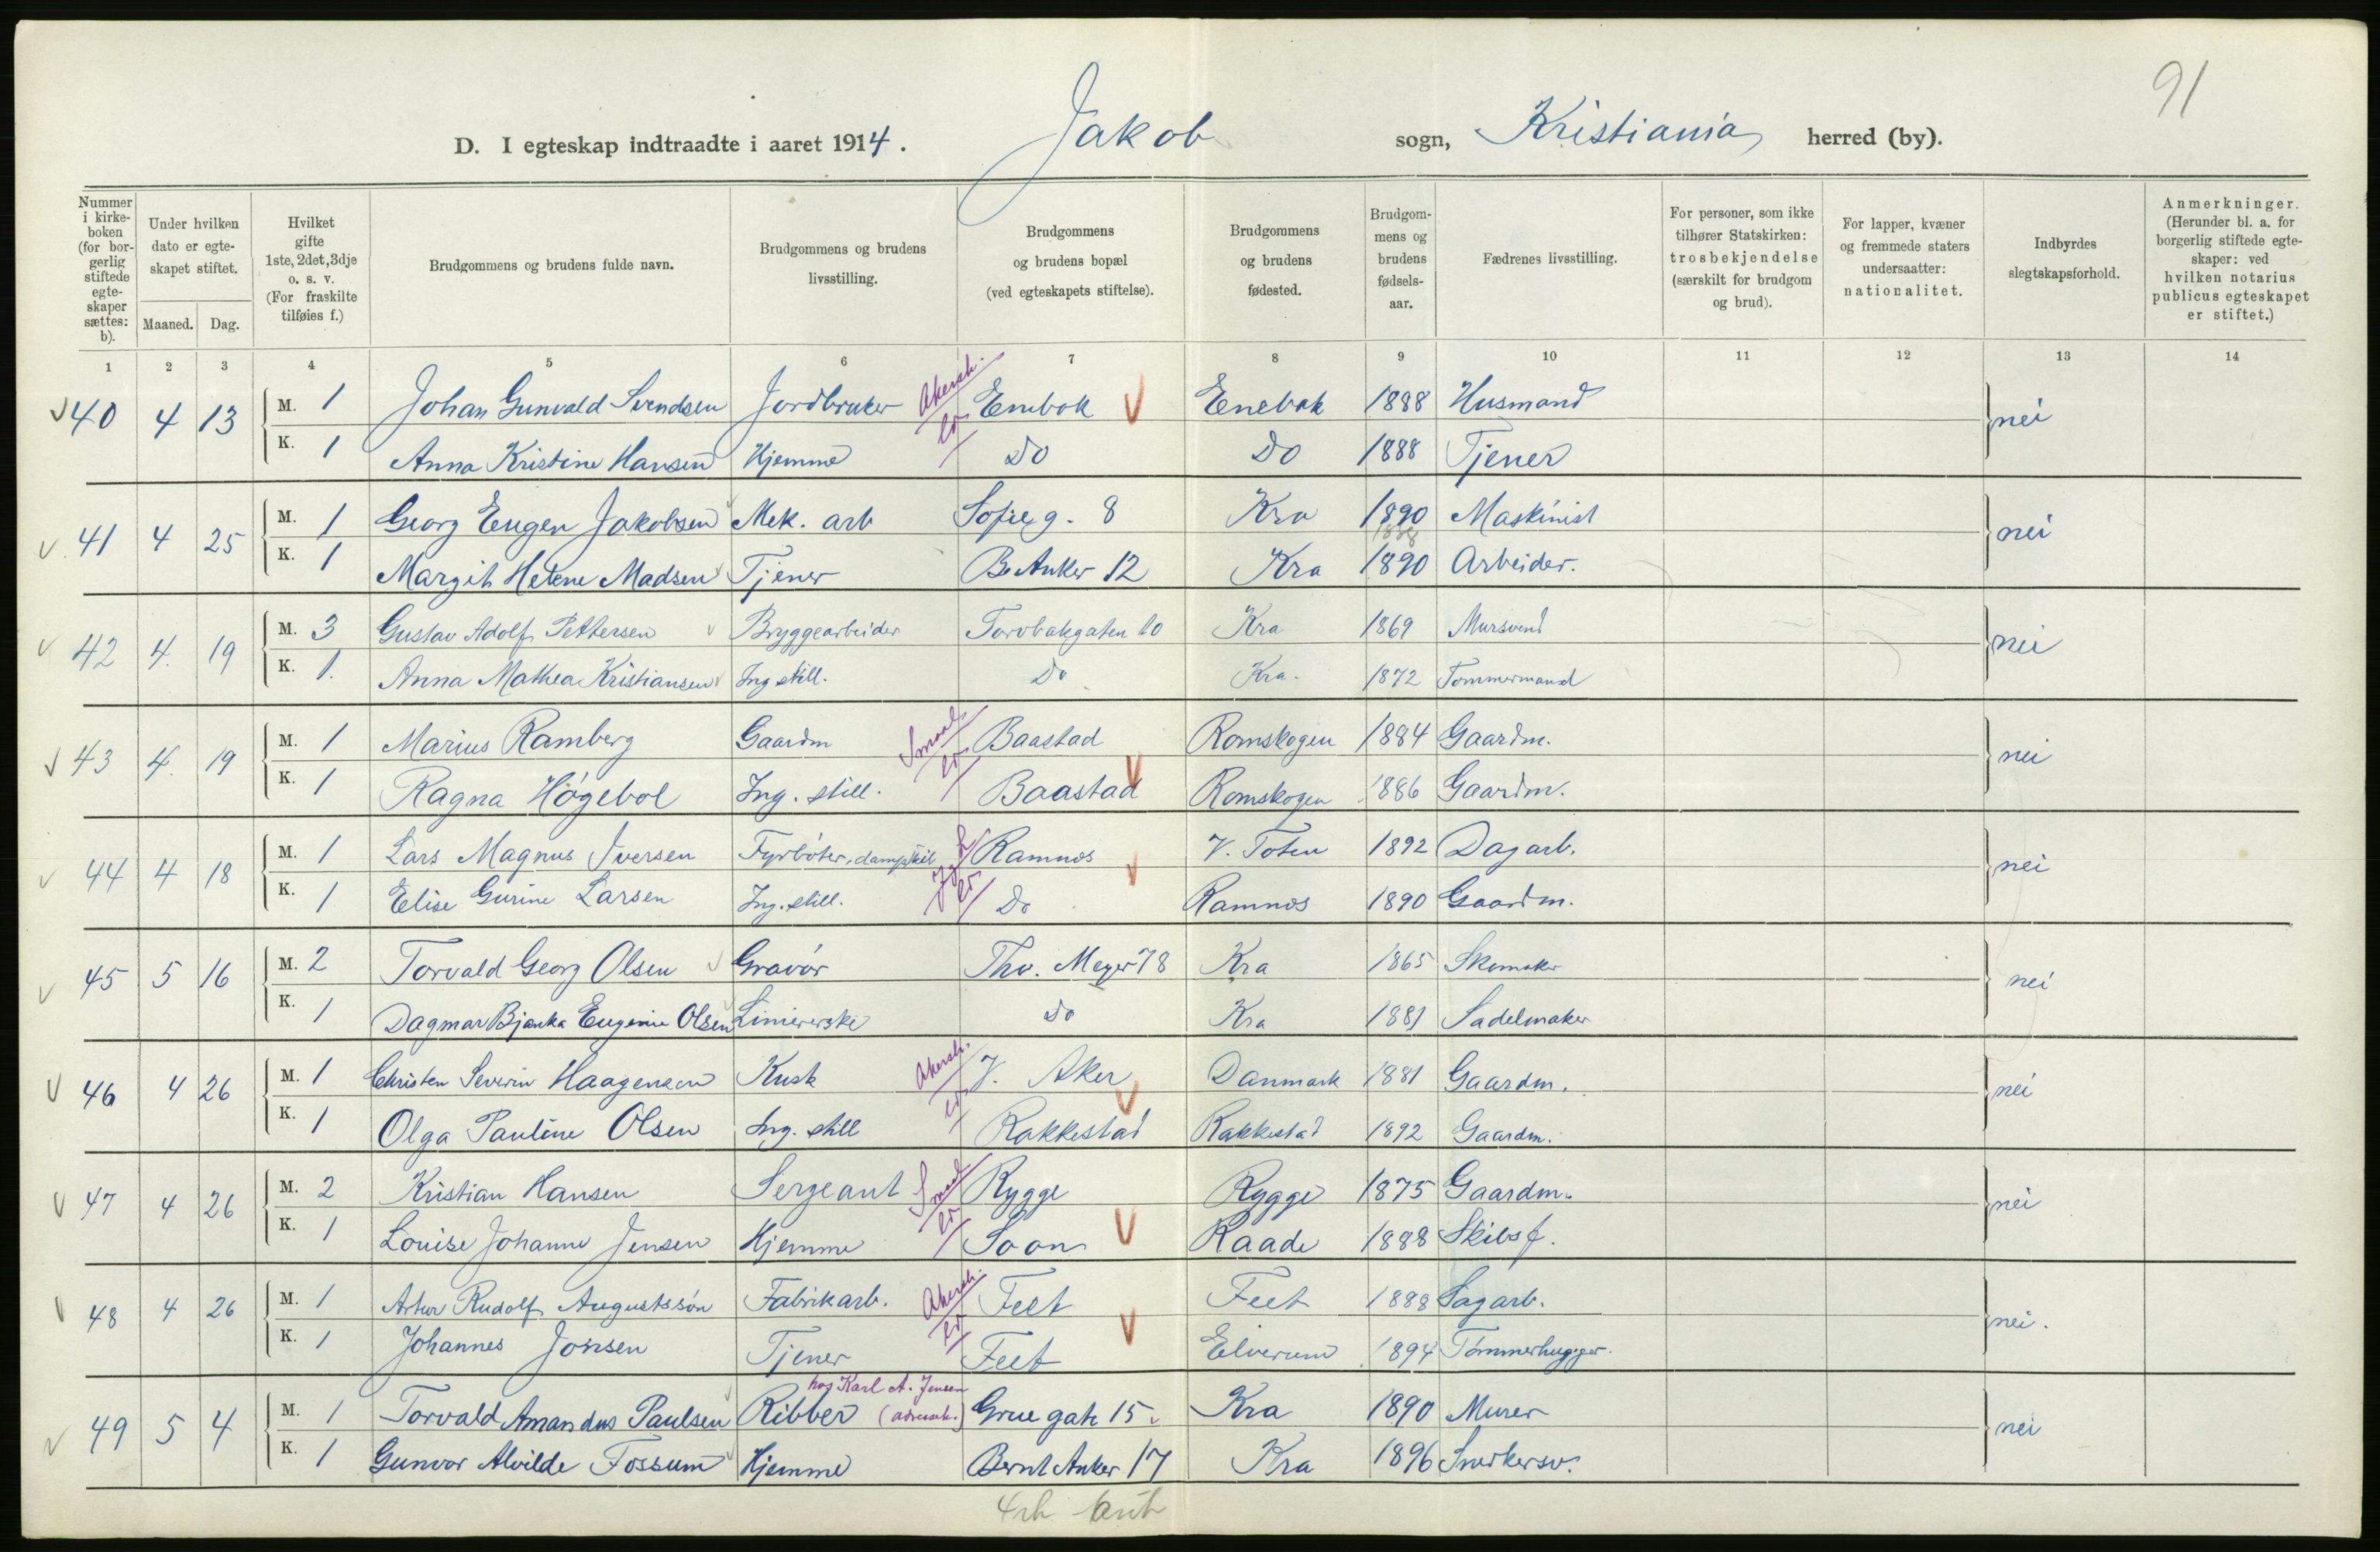 91
D. I egteskap indtraadte i aaret 1914. Jakob sogn, Kristiania herred (by).
Nummer i kirkeboken (for borgerlig stiftede egteskaper sættes: b).
Under hvilken dato er egteskapet stiftet.
Maaned. Dag.
Hvilket gifte 1ste, 2det, 3dje o. s. v. (For fraskilte tilføies f.)
Brudgommens og brudens fulde navn.
Brudgommens og brudens livsstilling.
Brudgommens og brudens bopæl (ved egteskapets stiftelse).
Brudgommens og brudens fødested.
Brudgommens og brudens fødselsaar.
Fædrenes livsstilling.
For personer, som ikke tilhører Statskirken: trosbekjendelse (særskilt for brudgom og brud).
For lapper, kvæner og fremmede staters undersaatter: nationalitet.
Indbyrdes slegtskapsforhold.
Anmerkninger. (Herunder bl. a. for borgerlig stiftede egteskaper: ved hvilken notarius publicus egteskapet er stiftet.)
1 2 3 4 5 6 7 8 9 10 11 12 13 14
40 4 13 M. 1 Johan Gunvald Svendsen Jordbruker Akersh. Enebok Enebak 1888 Husmand nei
K. 1 Anna Kristine Hansen Hjemme Do Do 1888 Tjener
41 4 25 M. 1 Georg Eugen Jakobsen Mek. arb Sofieg. 8 Kra 1890 Maskinist nei
K. 1 Margit Helene Madsen Tjener B. Anker 12 Kra 1890 Arbeider.
42 4. 19 M. 3 Gustav Adolf Pettersen Bryggearbeider Torvbakgaten 10 Kra 1869 Mursvend nei
K. 1. Anna Mathea Kristiansen Ing still. Do Kra. 1872 Tommermand
43 4. 19 M. 1 Marius Ramberg Gaardm Smaal Baastad Romskogen 1884 Gaardm. nei
K. 1 Ragna Högebol Ing. still. Baastad Romskogen 1886 Gaardm.
44 4 18 M. 1 Lars Magnus Iversen Fyrböter, dampskib Ramnos V. Toten 1892 Dagarb. nei
K. 1 Elise Gurine Larsen Ing. still. Do Ramnos 1890 Gaardm.
45 5 16 M. 2 Torvald Georg Olsen Gravör Thv. Meyer 78 Kra 1865 Skomaker nei
K. 1 Dagmar Bjanka Eugenie Olsen Liniererske Do Kra 1881 Sadelmaker
46 4 26 M. 1 Christen Severin Haagensen Kusk Akersh. V. Aker Danmark 1881 Gaardm. nei
K. 1 Olga Pauline Olsen Ing. still Rakkestad Rakkestad 1892 Gaardm.
47 4 26 M. 2 Kristian Hansen Sergeant Smaal Rygge Rygge 1875 Gaardm. nei
K. 1 Louise Johanne Jensen Hjemme Soon Raade 1888 Skibsf.
48 4 26 M. 1 Artur Rudolf Augustssön Fabrikarb. Akersh. Feet Feet 1888 Sagarb. nei.
K. 1 Johannes Jonsen Tjener Feet Elverum 1894 Tömmerhugger.
hos Karl A. Jensen
49 5 4 M. 1 Torvald Amandus Paulsen Ribber Grue gate 15. Kra 1890 Murer nei
K. 1 Gunvor Alvilde Fossum Hjemme Bernt Anker 17 Kra 1896 Snerkersv.